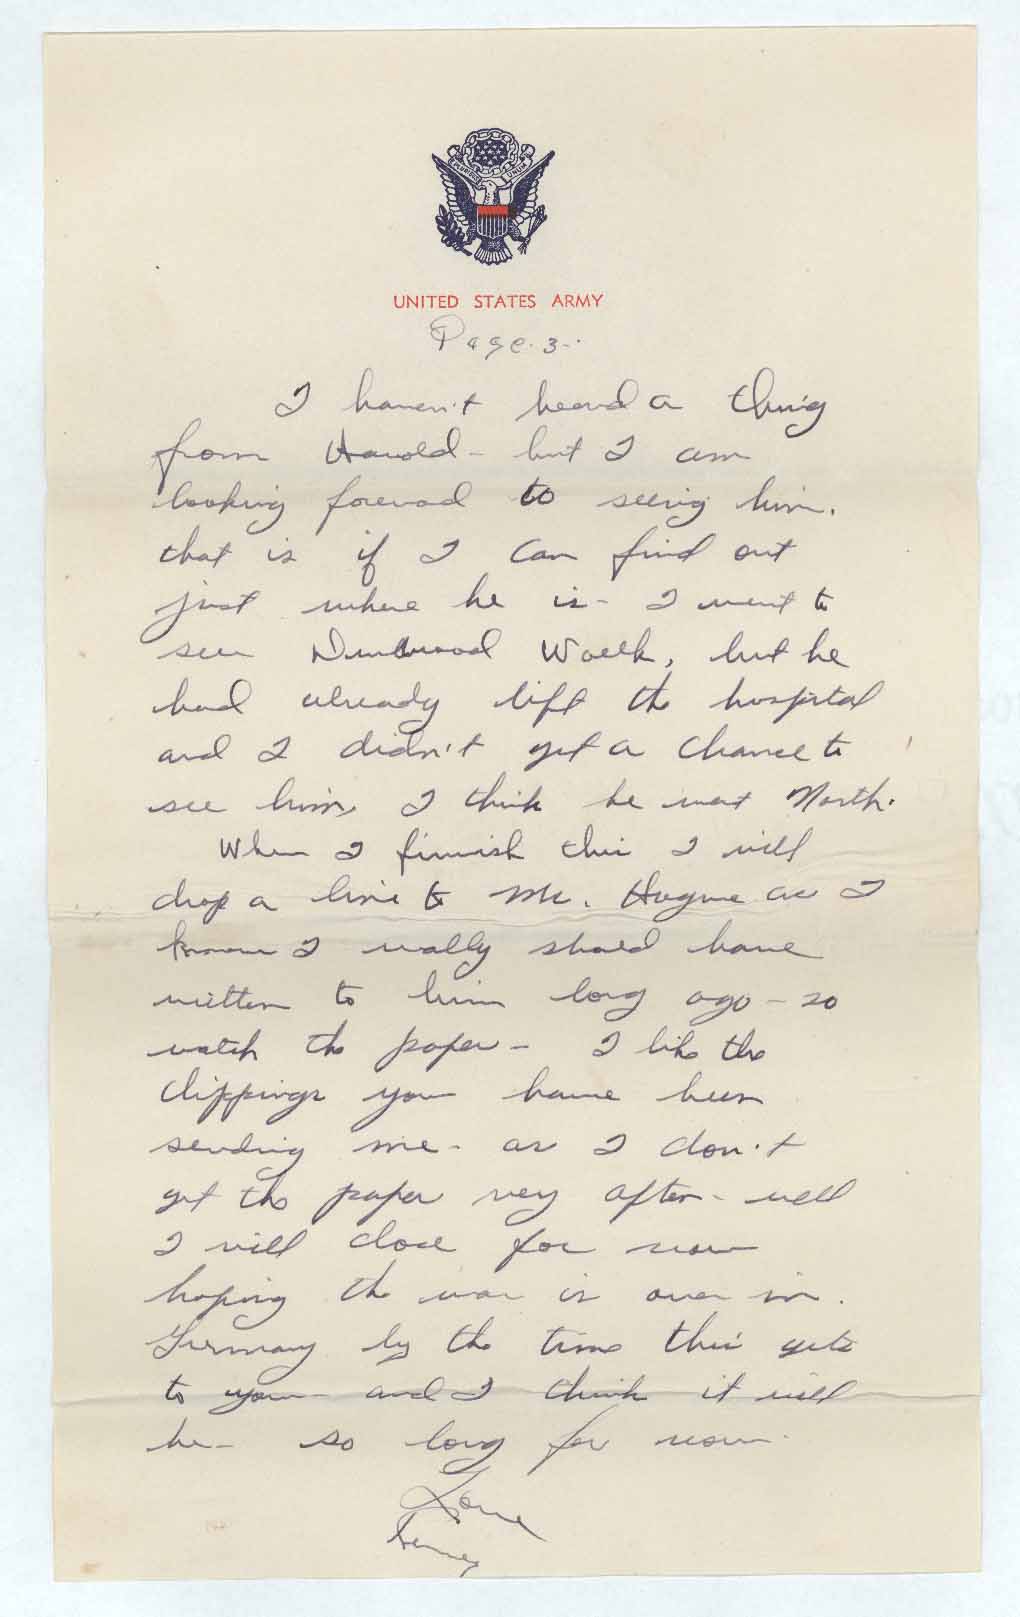 E PLURIBUS UNUM
UNITED STATES ARMY
Page 3.
I haven't heard a thing
from Harold - but I am
looking foreward to seeing him.
that is if I can find out
just where he is - I went to
see Woelk, but he
had already left the hospital
and I didn't get a chance to
see him, I think he went North.
When I finnish this I will
drop a line to Mr. Hague as I
know I really should have
written to him long ago - so
watch the paper - I like the
clippings you have been
sending me - as I don't
get the paper very often - well
I will close for now
hoping the war is over in
Germany by the time this gets
to you - and I think it will
be - so long for now.
Love